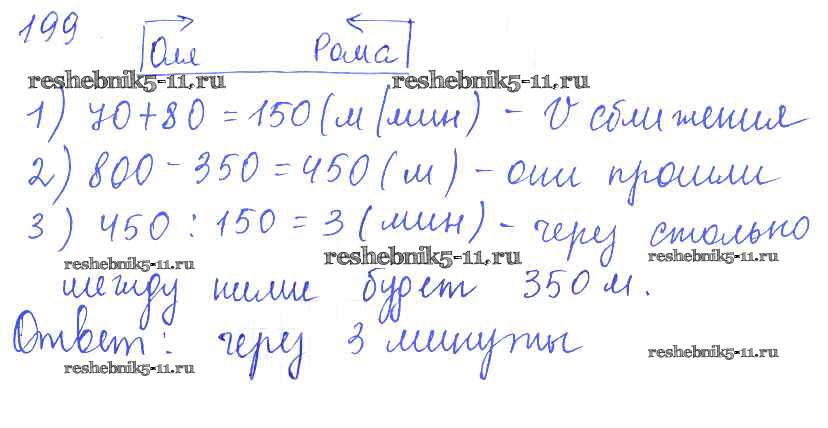 199
Оля Рома
reshebnik5-11.ru reshebnik5-11.ru
1) 70+80=150(м/мин) - V сближения
2) 800-350=450(м) - они прошли
3) 450:150=3(мин) - через столько
reshebnik5-11.ru reshebnik5-11.ru reshebnik5-11.ru
между ними будет 350 м.
Ответ: через 3 минуты
reshebnik5-11.ru reshebnik5-11.ru